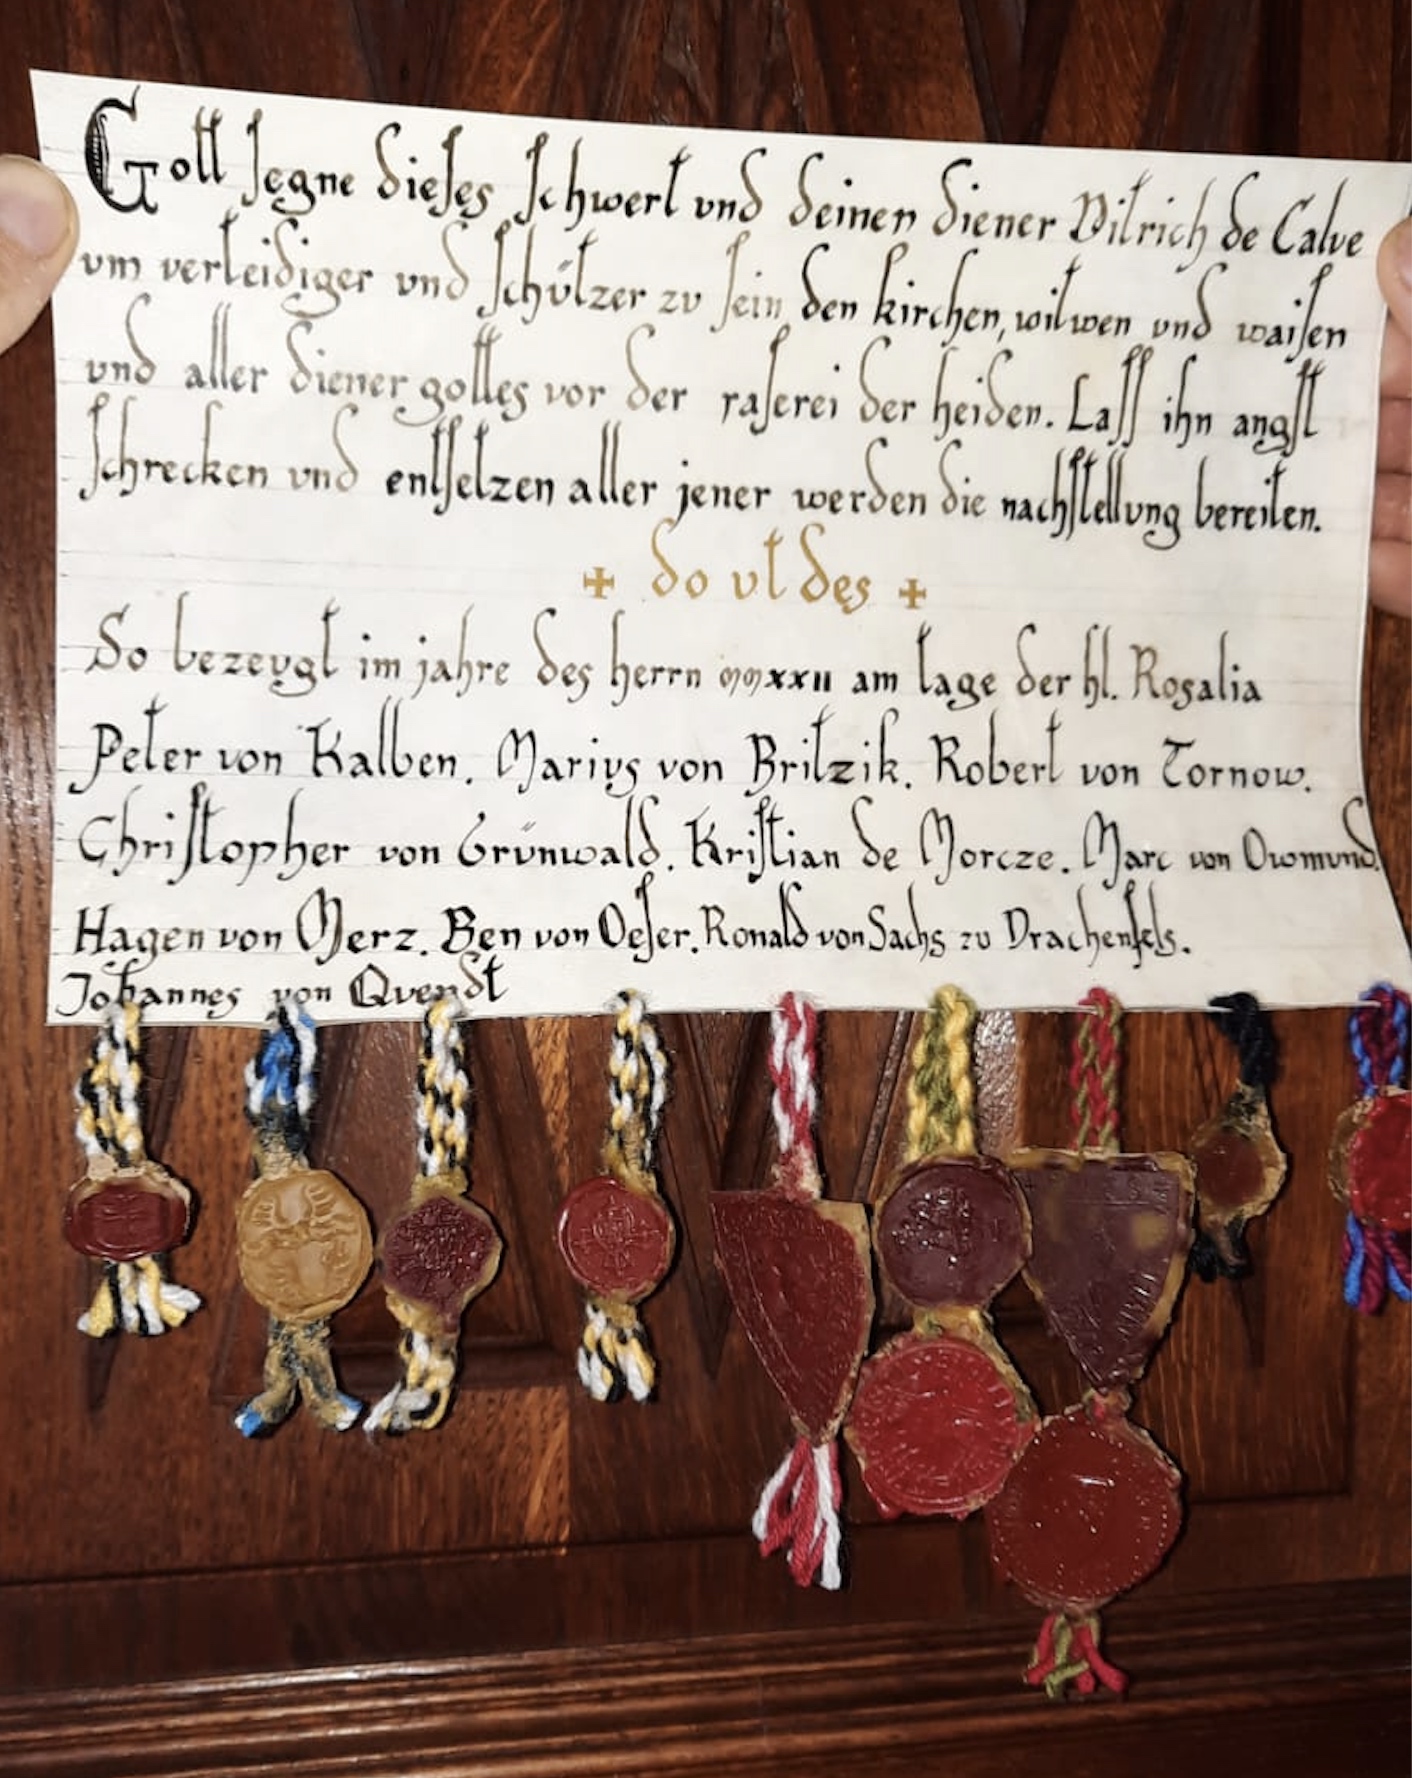 Gott ſegne dieſes ſchwert vnd deinen diener Ditrich de Calve
vm verteidiger vnd ſchützer zv ſein den kirchen, witwen vnd waiſen
vnd aller diener gottes vor der raſerei der heiden. Laſſ ihn angſt
ſchrecken vnd entſetzen aller jener werden die nachſtellvng bereiten.
✠ do vt des ✠
So bezevgt im jahre des herrn mmxxii am tage der hl. Rosalia
Peter von Kalben. Marivs von Britzik. Robert von Tornow.
Chriſtopher von Grünwald. Kriſtian de Morcze. Marc von Owmvnd.
Hagen von Merz. Ben von Oeſer. Ronald von Sachs zv Drachenfels.
Johannes von Qvendt